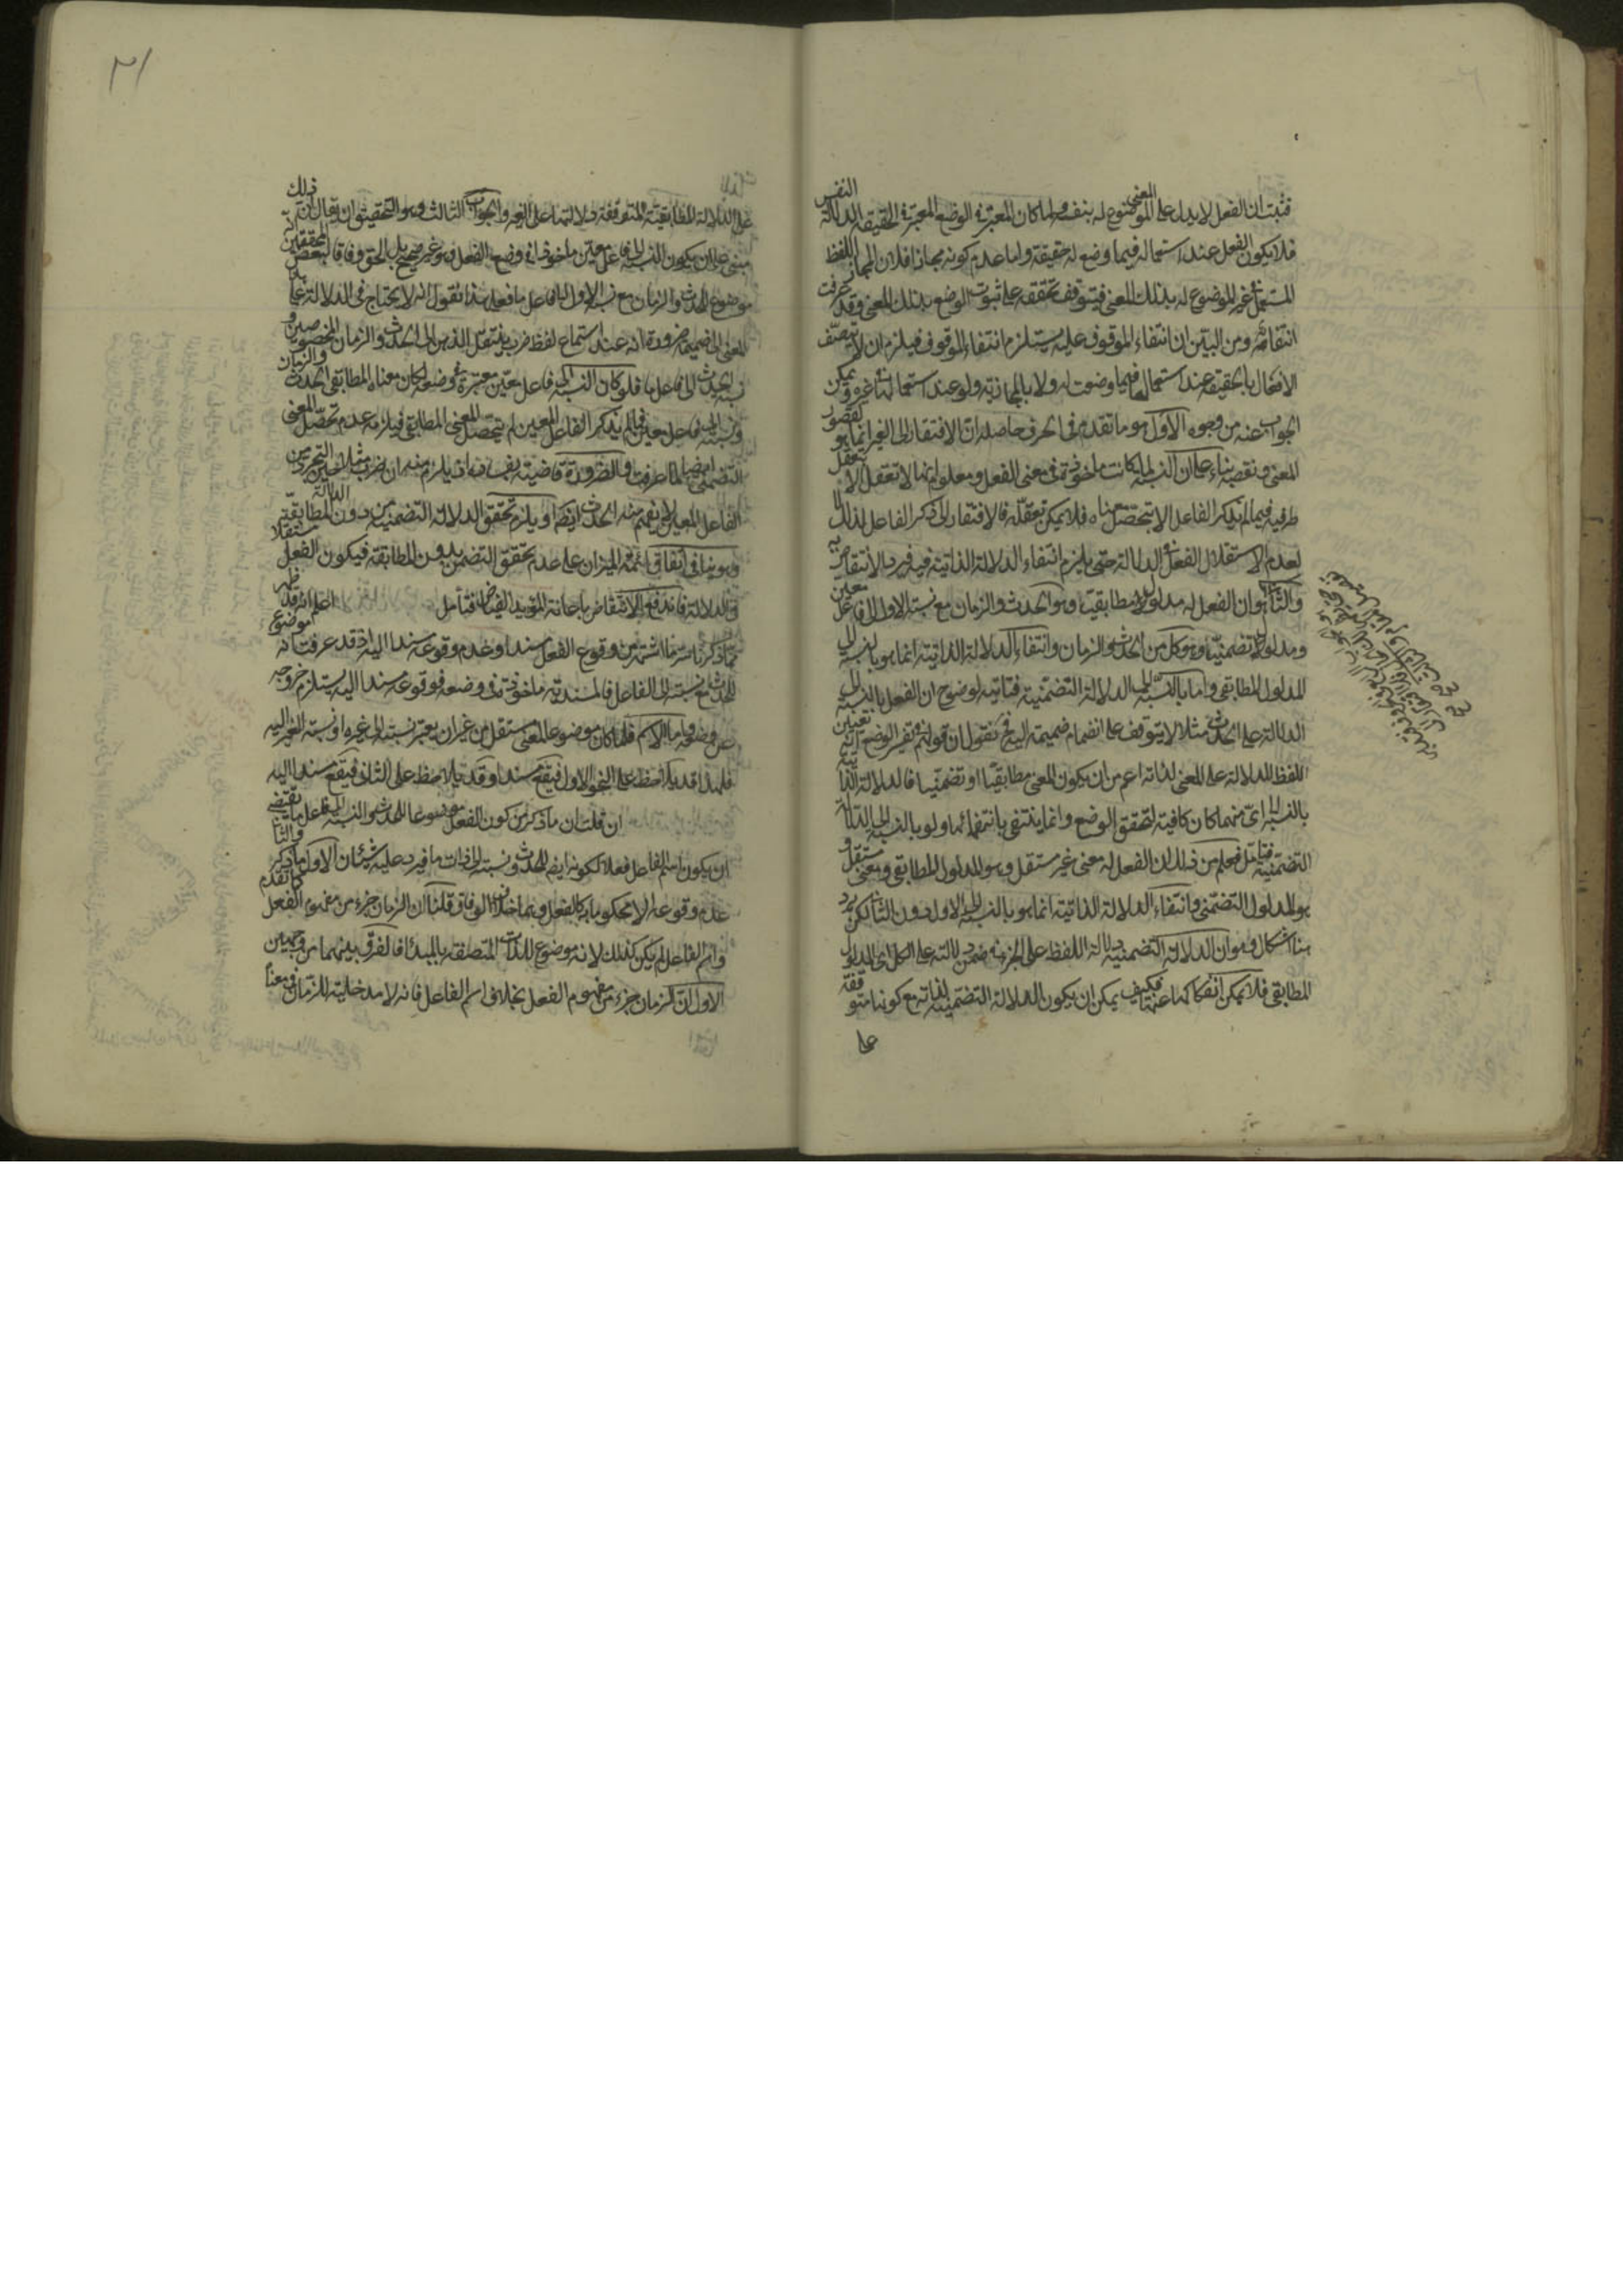 فثبت ان الفعل لا يدل على المعنى الموضوع له بنفسه ولما كان المعتبر في الوضع المعتبر في الحقيقة الدلالة النفس
فلا يكون الفعل عند استعماله فيما وضع له حقيقة واما عدم كونه مجازا فلان المجاز اللفظ
المستعمل في غير الموضوع له بذلك المعنى فيتوقف تحققه على ثبوت الوضع بذلك المعنى وقد عرفت
انتفائه ومن البين ان انتفاء الموقوف عليه يستلزم انتفاء الموقوف فيلزم ان لا يتصف
الافعال بالحقيقة عند استعمالها فيما وضعت له ولا بالمجازية ولو عند استعمالها في غيره ويمكن
الجواب عنه من وجوه الاول هو ما تقدم في الحرف حاصله ان الافتقار الى الغير انما هو لقصور
المعنى ونقصه بناء على ان النسبة لما كانت ماخوذة في معنى الفعل ومعلوم انها لا تتعقل الا بتعقل
طرفيه فيما لم يذكر الفاعل لا يتحصل معناه فلا يمكن تعقله فالافتقار الى ذكر الفاعل لذلك لا
لعدم الاستقلال الفعل في الدلالة حتى يلزم انتفاء الدلالة الذاتية فيه فيرد الانتقاض به
والثاني هو ان الفعل له مدلول مطابقي وهو الحدث والزمان مع نسبة الاول الى فاعل معين
ومدلول تضمني وهو كل من الحدث والزمان وانتفاء الدلالة الذاتية انما هو بالنسبة الى
المدلول المطابقي واما بالنسبة الى الدلالة التضمنية فثابتة لوضوح ان الفعل بالنسبة الى
الدلالة على الحدث مثلا لا يتوقف على انضمام ضميمة اليه فح نقول ان قولهم في تفسير الوضع انه تعيين
اللفظ للدلالة على المعنى لذاته اعم من ان يكون المعنى مطابقيا او تضمنيا فالدلالة الذاتية
بالنسبة الى اي منهما كان كافية لتحقق الوضع وانما ينتفي بانتفائهما ولو بالنسبة الى الدلالة
التضمنية فتامل فعلم من ذلك ان الفعل له معنى غير مستقل وهو المدلول المطابقي ومعنى مستقل و
هو المدلول التضمني وانتفاء الدلالة الذاتية انما هو بالنسبة الى الاول دون الثاني لكن يرد
هنا اشكال وهو ان الدلالة التضمنية دلالة اللفظ على الجزء في ضمن دلالته على الكل اي المدلول
المطابقي فلا يمكن انفكاكها عنها فكيف يمكن ان يكون الدلالة التضمنية لذاته مع كونها متوقفة
على
على الدلالة المطابقية المتوقفة دلالتها على الغير والجواب الثالث وهو التحقيق ان يقال ان ذلك
مبني على ان يكون النسبة الى فاعل معين ماخوذا في وضع الفعل وهو غير صحيح بل الحق وفاقا لبعض المحققين انه
موضوع للحدث والزمان مع نسبة الاول الى فاعل ما فعلى هذا نقول انه لا يحتاج في الدلالة على هذا
المعنى الى ضميمة ضرورة انه عند استماع لفظ ضرب ينتقل الذهن الى الحدث والزمان المخصوصين و
نسبة الحدث الى فاعل ما فلو كان النسبة الى فاعل معين معتبرة في وضعه لكان معناه المطابقي الحدث والزمان
ونسبته الى فاعل معين فما لم يذكر الفاعل المعين لم يتحصل المعنى المطابقي فيلزمه عدم تحصل المعنى
التضمني ايضا لما عرفت والضرورة قاضية بفساده اذ يلزم منه ان ضرب مثلا حين التجرد من
الفاعل المعين لا يفهم منه الحدث ايضا او يلزم تحقق الدلالة التضمنية من دون الدلالة المطابقية
وهو ينافي اتفاق ائمة الميزان على عدم تحقق التضمن بدون المطابقة فيكون الفعل مستقلا
في الدلالة فاندفع الانتقاض باعانة المؤيد الفياض فتامل اعلم انه قد ظهر
مما ذكرنا سر ما اشتهر من وقوع الفعل مسندا وعدم وقوعه مسندا اليه اذ قد عرفت انه موضوع
للحدث مع نسبته الى الفاعل فالمسندية ماخوذة في وضعه فوقوعه مسندا اليه يستلزم خروجه
عن وضعه واما الاسم فلما كان موضوعا لمعنى مستقل من غير ان يعتبر نسبته الى غيره او نسبة الغير اليه
فلهذا قد يلاحظ على النحو الاول فيقع مسندا وقد يلاحظ على الثاني فيقع مسندا اليه
ان قلت ان ما ذكر من كون الفعل موضوعا للحدث والنسبة الى فاعل ما يقتضي
ان يكون اسم الفاعل فعلا لكونه ايضا للحدث ونسبته الى ذات ما فيرد عليه شيئان الاول ما ذكر والثاني
عدم وقوعه الا محكوما به كالفعل وهما خلاف الوفاق قلنا ان الزمان جزء من مفهوم الفعل كما تقدم
واسم الفاعل لم يكن كذلك لانه موضوع للذات المتصفة بالمبدأ فالفرق بينهما من وجهين
الاول ان الزمان جزء من مفهوم الفعل بخلاف اسم الفاعل فانه لا مدخلية للزمان في معناه